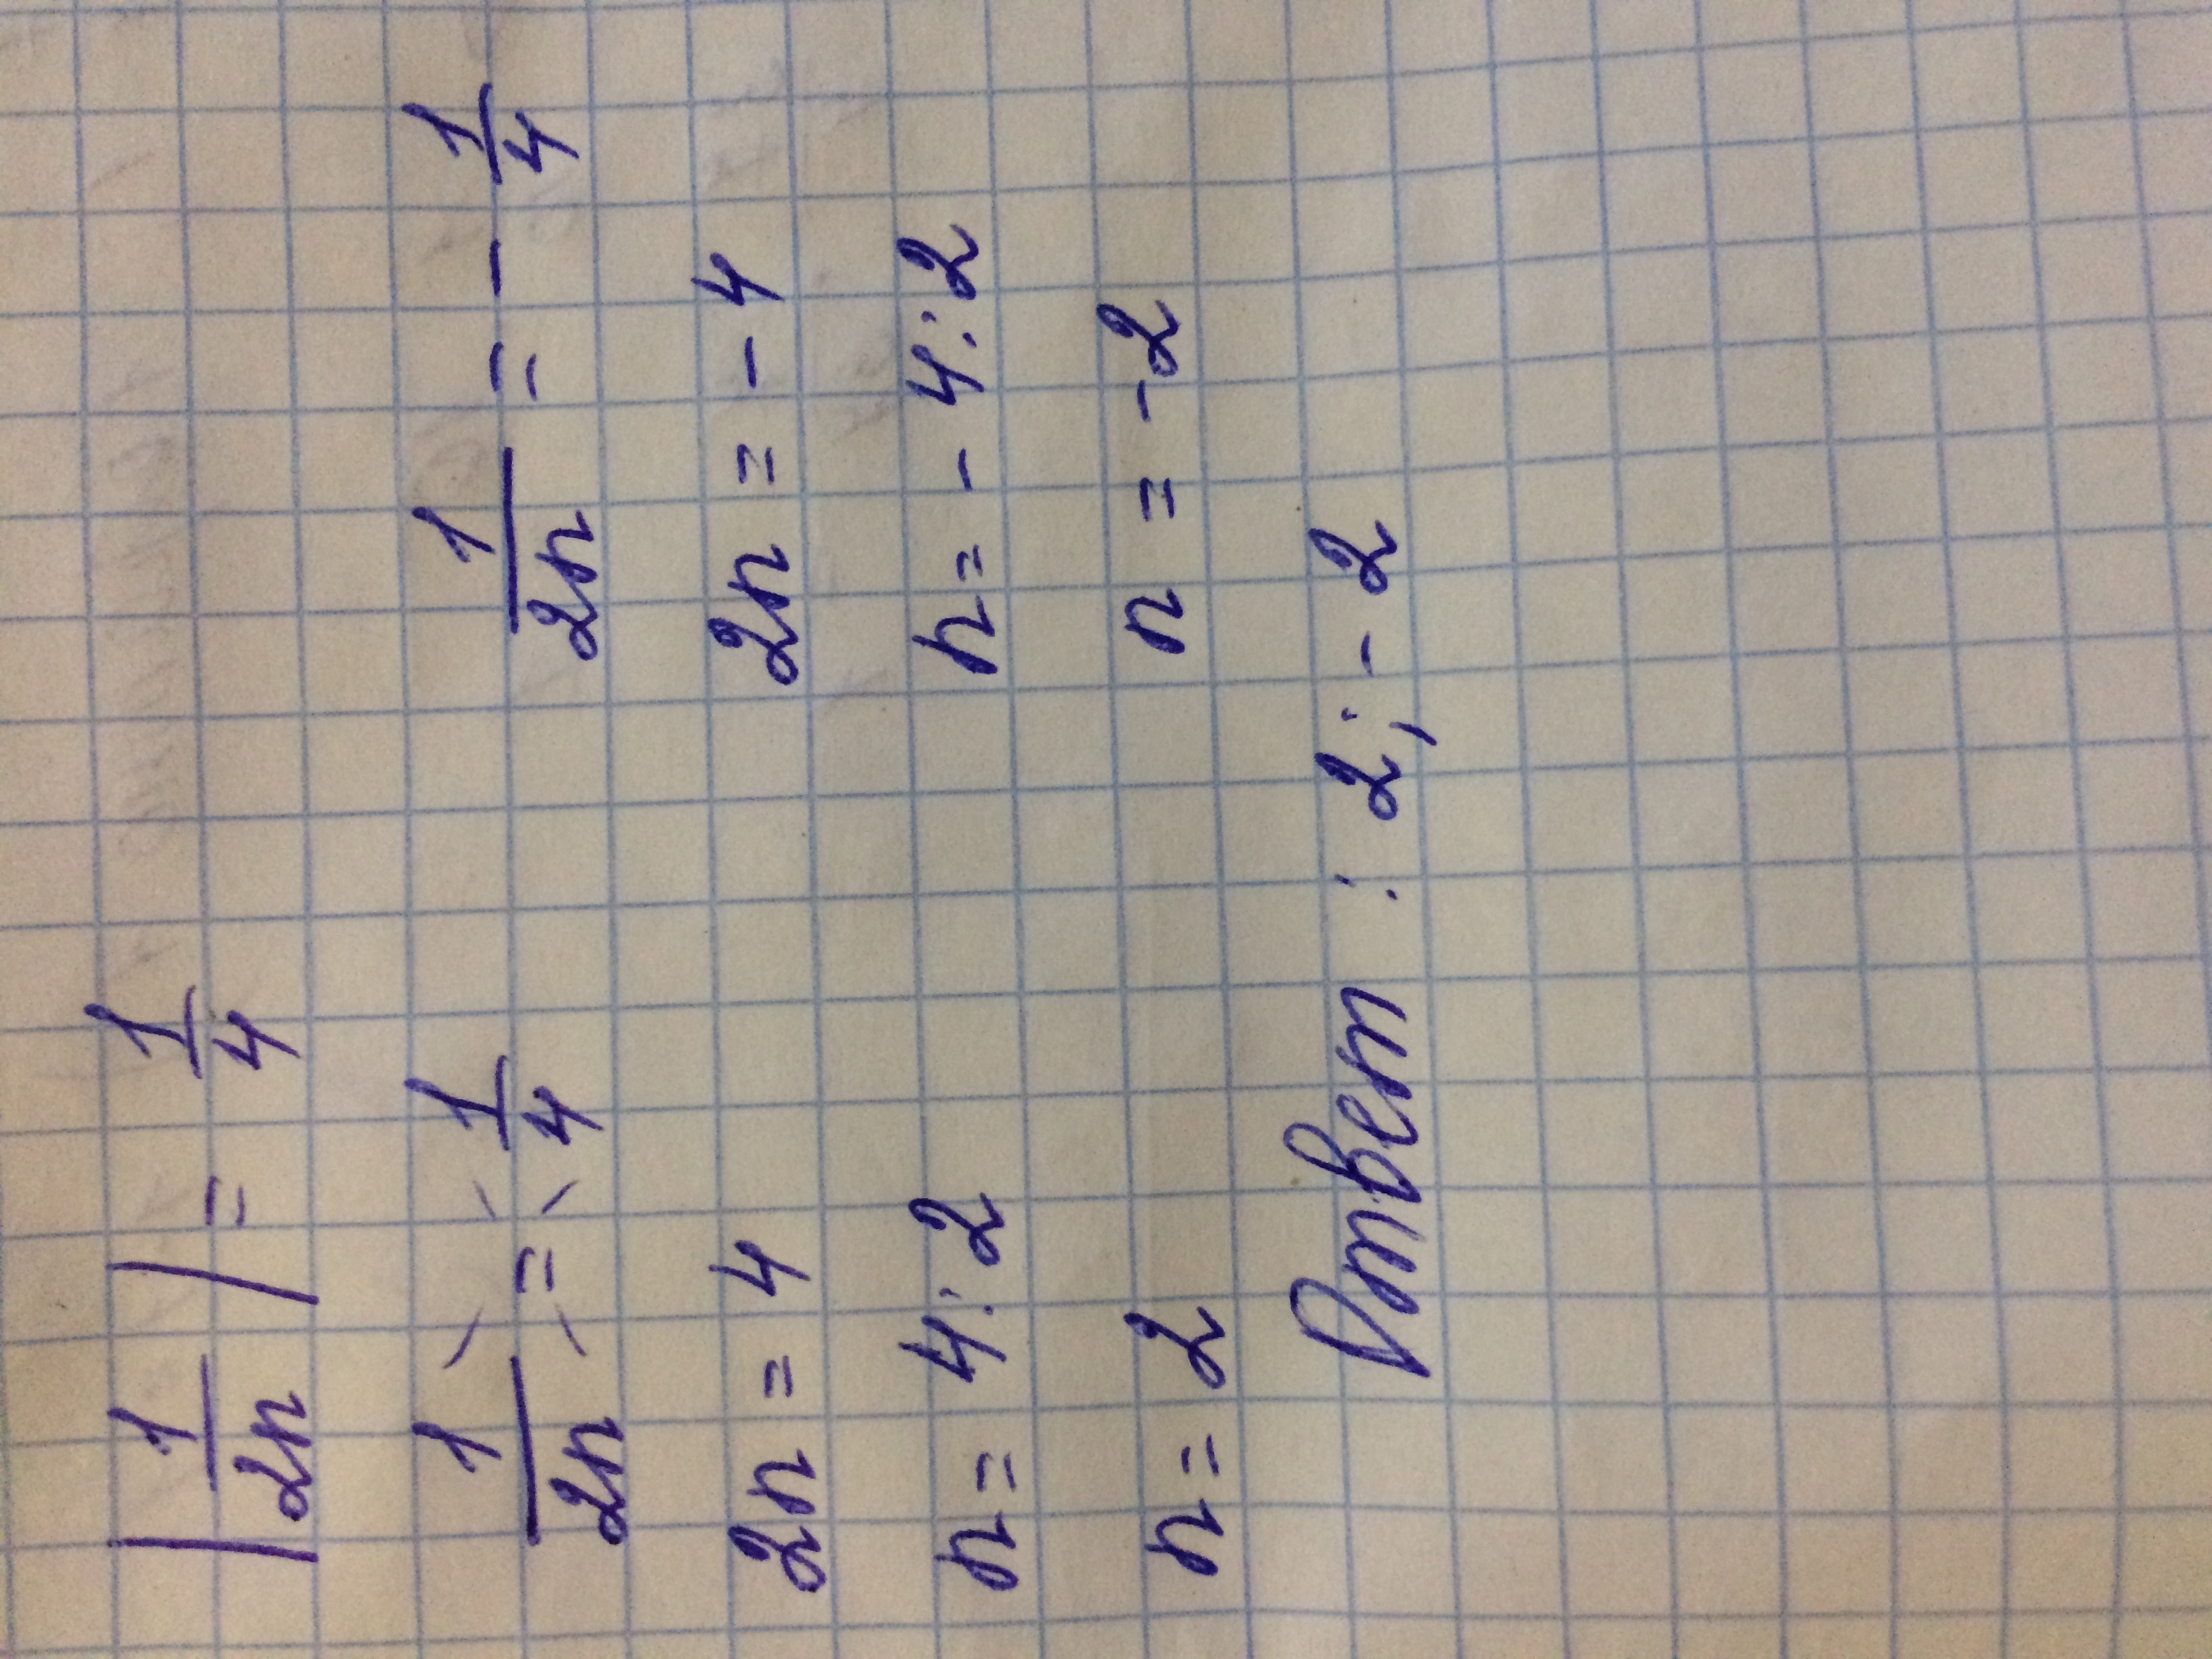 |1/2n| = 1/4
1/2n = 1/4 1/2n = - 1/4
2n = 4 2n = - 4
n = 4 : 2 n = - 4 : 2
n = 2 n = -2
Ответ : 2; - 2